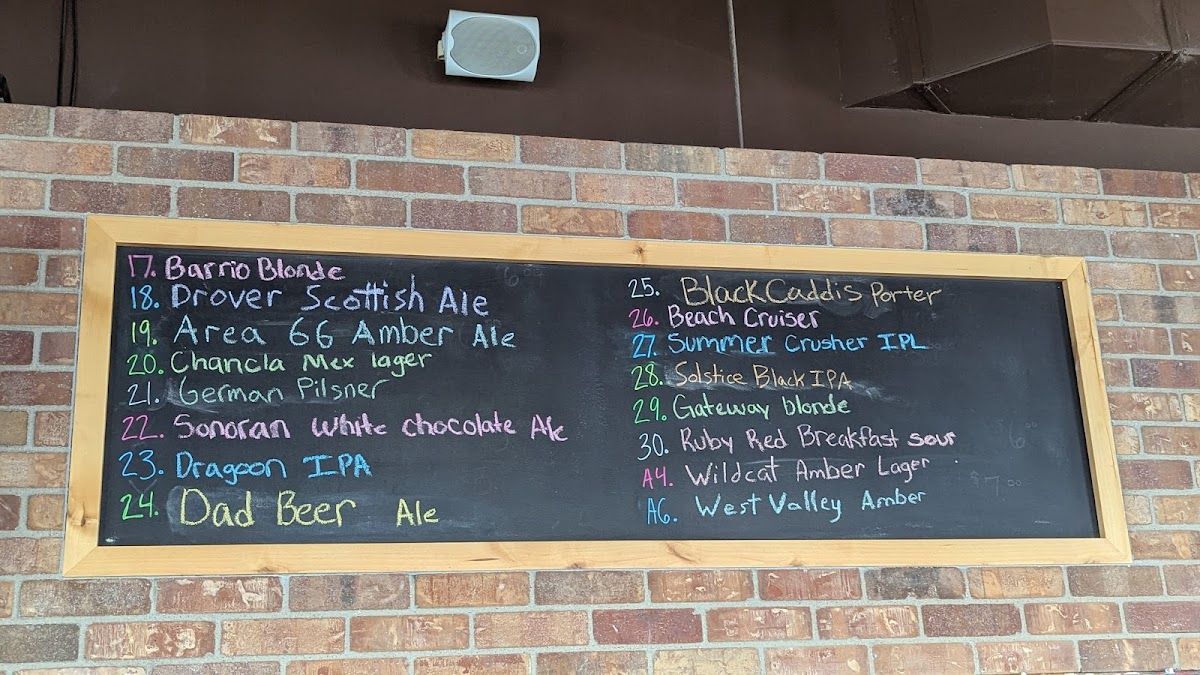 17. Barrio Blonde
18. Drover Scottish Ale
19. Area 66 Amber Ale
20. Chancla Mex lager
21. German Pilsner
22. Sonoran white chocolate Ale
23. Dragoon IPA
24. Dad Beer Ale
25. Black Caddis Porter
26. Beach Cruiser
27. Summer Crusher IPL
28. Solstice Black IPA
29. Gateway blonde
30. Ruby Red Breakfast sour
A4. Wildcat Amber Lager
A6. West Valley Amber